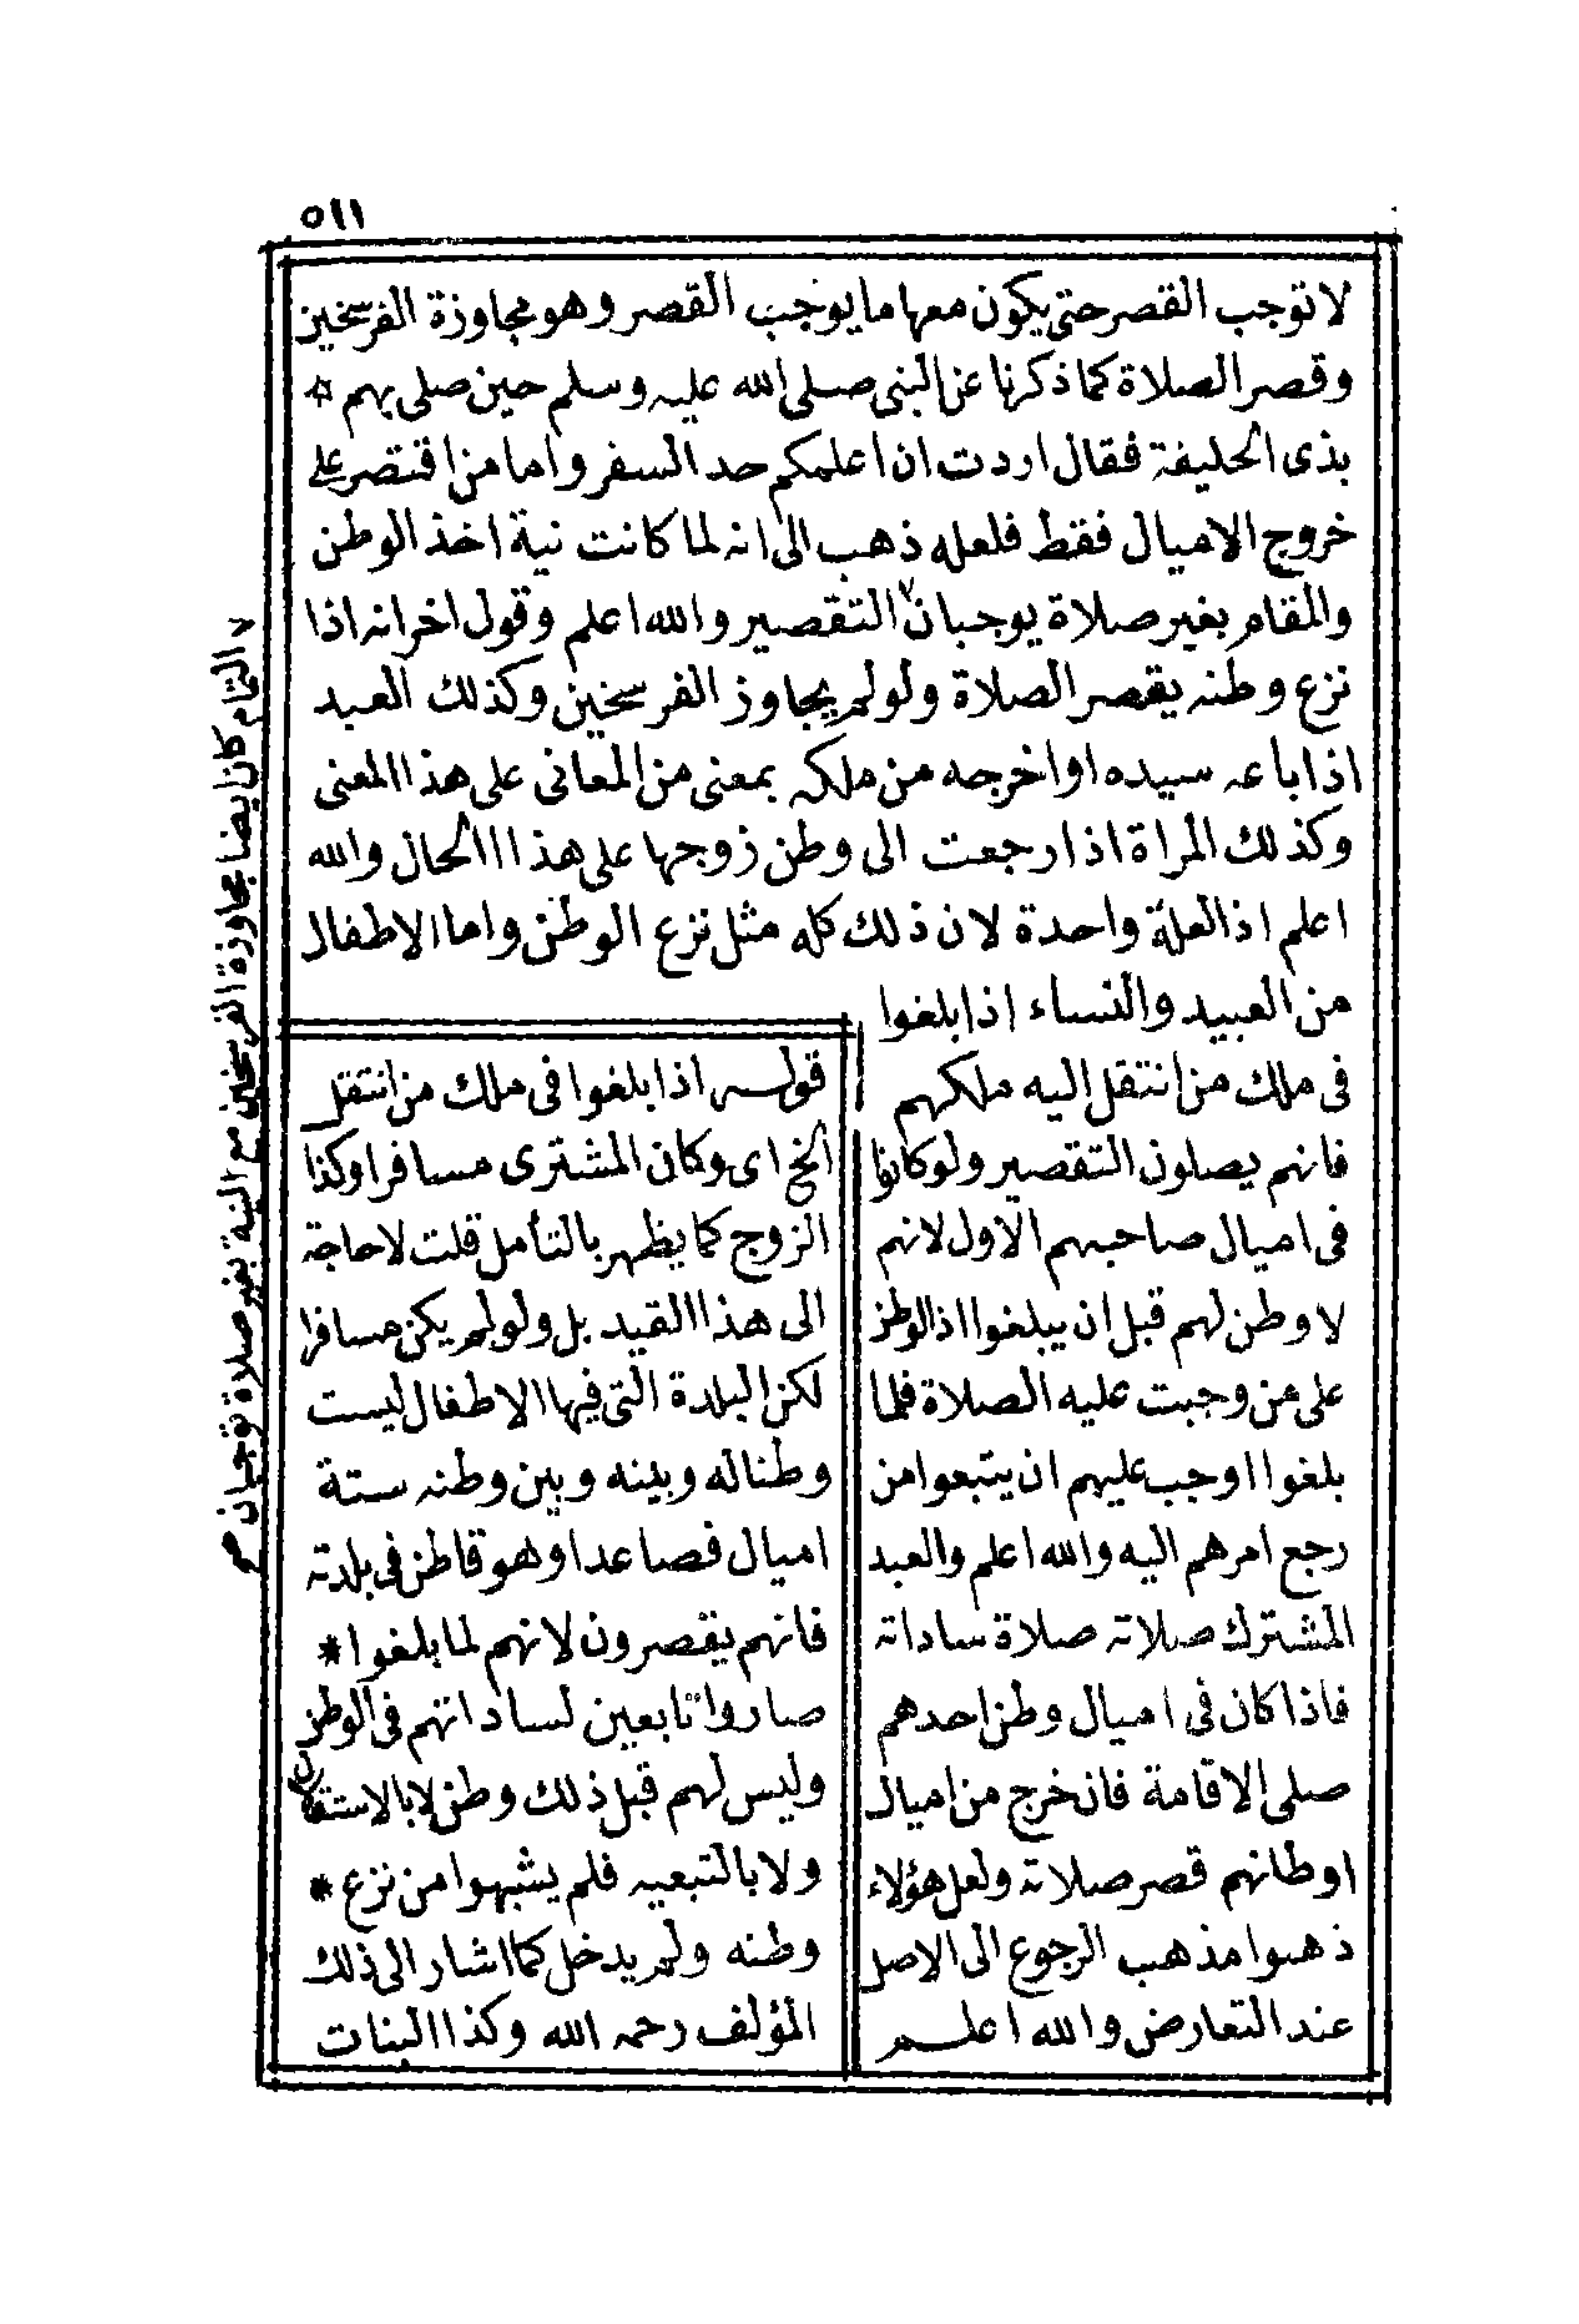 ٥١١
لا توجب القصر حتى يكون معها ما يوجب القصر وهو مجاوزة الفرسخين
وقصر الصلاة كما ذكرنا عن النبى صلى الله عليه وسلم حين صلى بهم *
بذى الحليفة فقال اردت ان اعلمكم حد السفر واما من اقتصر على
خروج الاميال فقط فلعله ذهب الى انه لما كانت نية اخذ الوطن
والمقام بغير صلاة يوجبان٧ التقصير والله اعلم وقول اخر انه اذا
نزع وطنه يقصر الصلاة ولو لم يجاوز الفرسخين وكذلك العبد
اذا باعه سيده او اخرجه من ملكه بمعنى من المعانى على هذا المعنى
وكذلك المراة اذا رجعت الى وطن زوجها على هذا الحال والله
اعلم اذ العلة واحدة لان ذلك كله مثل نزع الوطن واما الاطفال
من العبيد والنساء اذا بلغوا
فى ملك من انتقل اليه ملكهم
فانهم يصلون التقصير ولو كانوا
فى اميال صاحبهم الاول لانهم
لا وطن لهم قبل ان يبلغوا اذ الوطن
على من وجبت عليه الصلاة فلما
بلغوا اوجب عليهم ان يتبعوا من
رجع امرهم اليه والله اعلم والعبد
المشترك صلاته صلاة ساداته
فاذا كان فى اميال وطن احدهم
صلى الاقامة فان خرج من اميال
اوطانهم قصر صلاته ولعل هؤلاء
ذهبوا مذهب الرجوع الى الاصل
عند التعارض والله اعلم
قوله اذا بلغوا فى ملك من انتقل
الخ اى وكان المشترى مسافرا وكذا
الزوج كما يظهر بالتأمل قلت لا حاجة
الى هذا القيد بل ولو لم يكن مسافرا
لكن البلدة التى فيها الاطفال ليست
وطنا له وبينه وبين وطنه ستة
اميال فصاعدا وهو قاطن فى بلدته
فانهم يقصرون لانهم لما بلغوا *
صاروا تابعين لساداتهم فى الوطن
وليس لهم قبل ذلك وطن لا بالاستقلال
ولا بالتبعيه فلم يشبهوا من نزع *
وطنه ولم يدخل كما اشار الى ذلك
المؤلف رحمه الله وكذا البنات
٧ التمام كان ايضا مجاوزة الفرسخين مع النية بغير صلاة توجبان صح